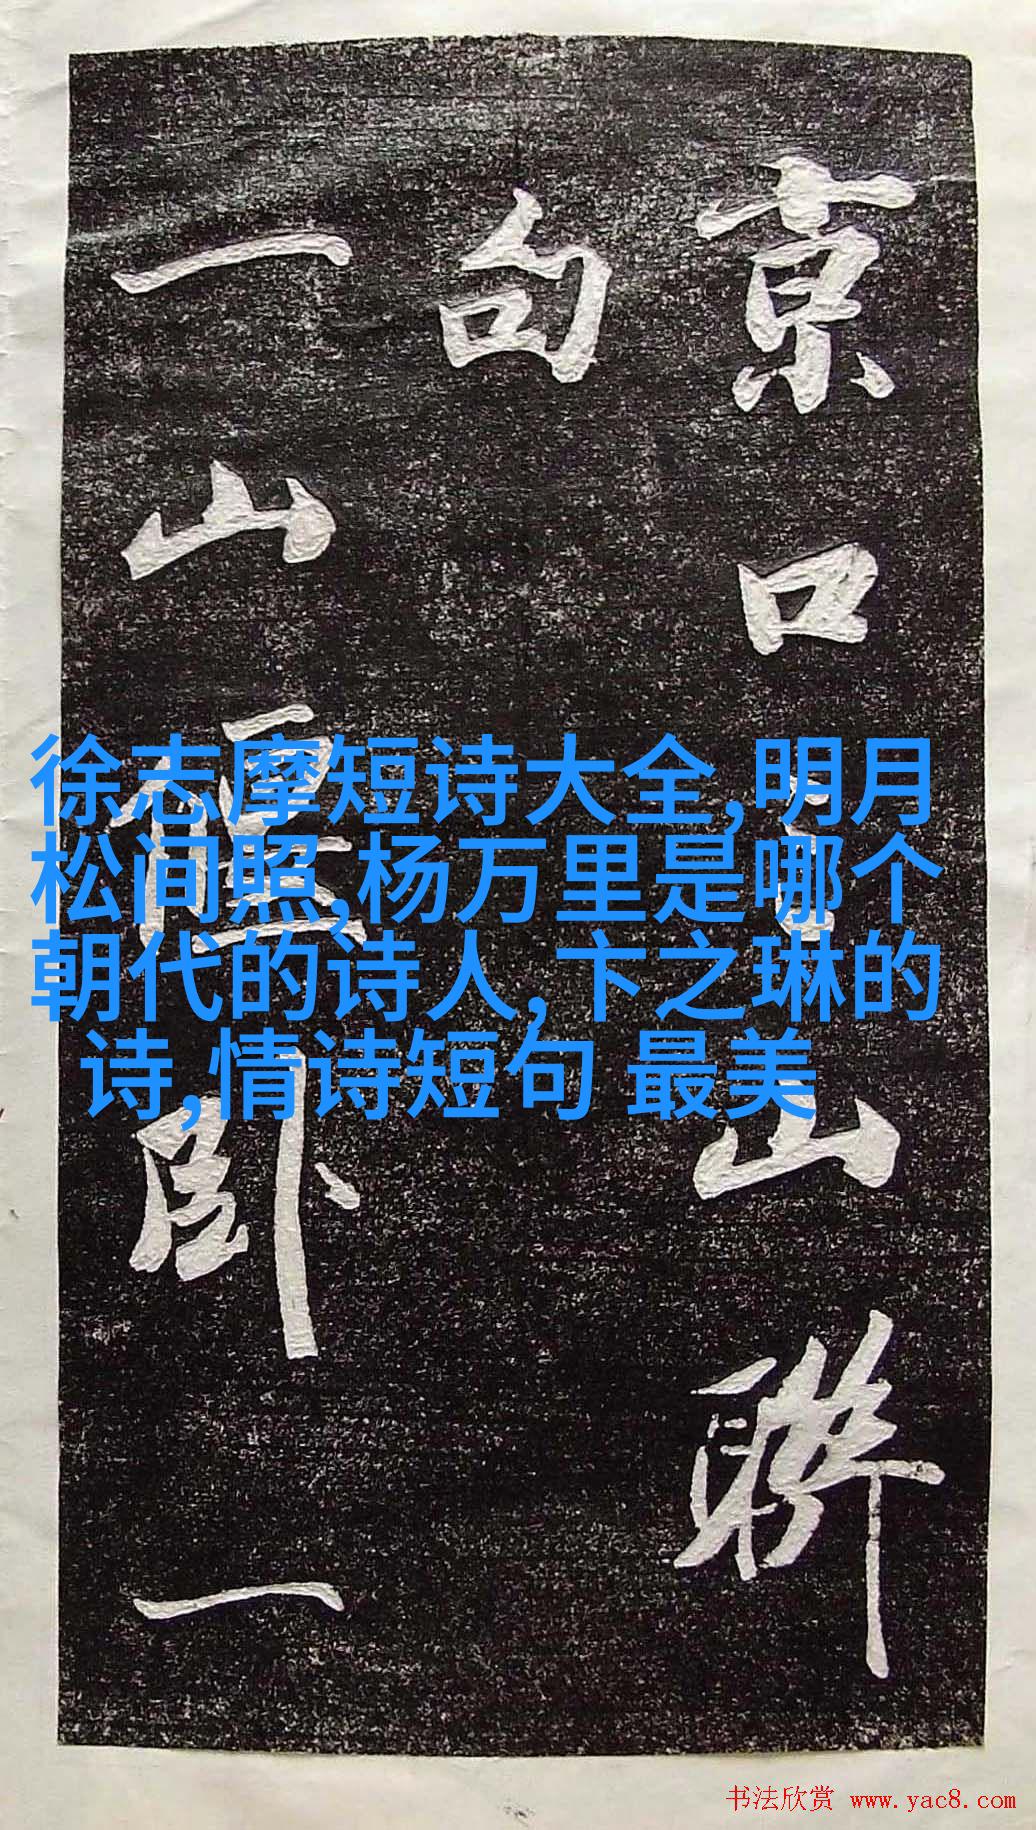 京口山聯
句
一山卧一
徐志摩短诗大全,明月
松间照,杨万里是哪个
朝代的诗人,卞之琳的
诗,情诗短句 最美
书法欣赏 www.yac8.com